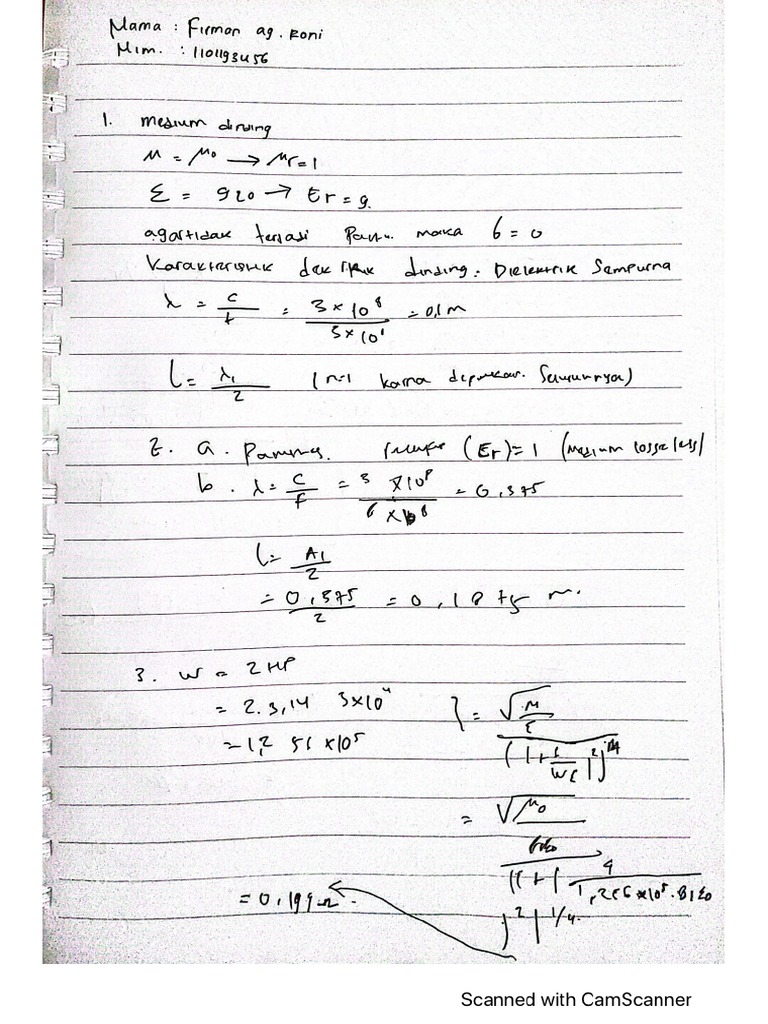 Nama : Firman ag. Roni
Nim. : 1101193456
1. medium dinding
μ = μ0 → μr = 1
ε = 9ε0 → Er = 9.
agar tidak terjadi maka 6 = 0
Karakteristik dinding. Dielektrik Sempurna
λ = c/f = 3 × 10^8 / 3 × 10^ = 0,1 m
l = λ1/2 (n=1 karna)
2. a. (Er) = 1 (medium lossless)
b. λ = c/f = 3 × 10^8 / 8 × 10^8 = 0,375
l = λ1/2
= 0,375/2 = 0,1875 m.
3. w = 2πf
= 2. 3,14 3×10^4
= 1,2 56 ×10^5
η = √μ/ε / (1+(6/wε)^2)^1/4
= √μ0/ / (1+(4/1,256×10^5.81ε0)^2)^1/4
= 0,199 Ω.
Scanned with CamScanner